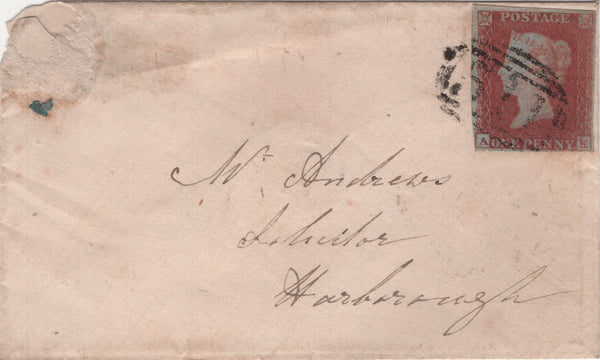 POSTAGE
A K
ONE PENNY
Mr Andrews
Solicitor
Harborough